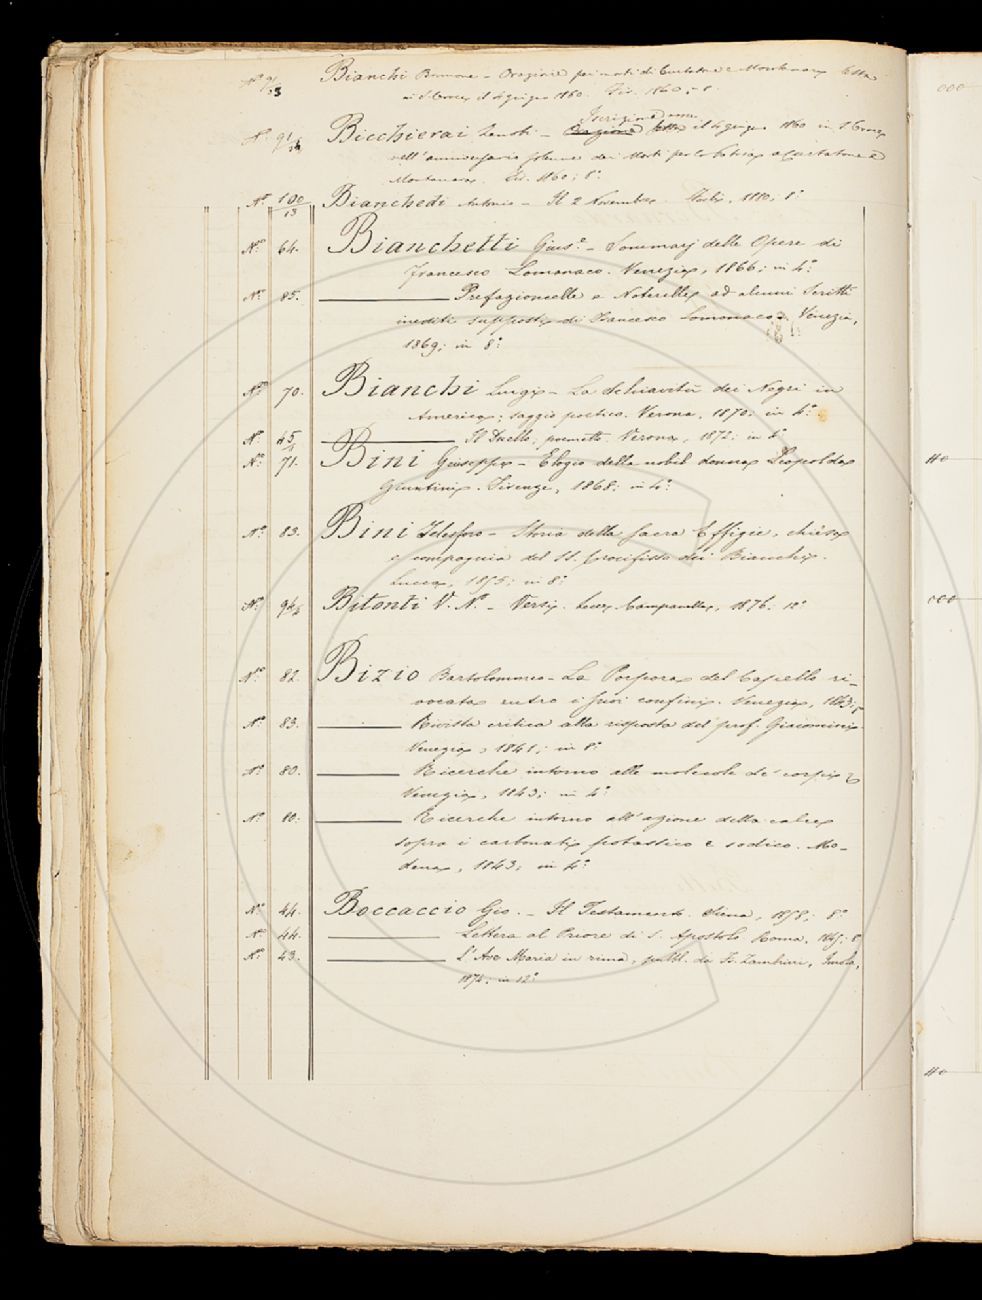 Nº 9/33 Bianchi Brunone - Orazione pei morti di Curtatone e Montanara letta
in S. Croce il 4 giugno 1860. Fir. 1860; 8º
Nº 91/34 Bicchierai Zenobi - Iscrizione Orazione letta il 4 giugno 1860 in S. Croce
nell'anniversario solenne dei Morti per la Patria a Curtatone e
Montanara. Fir. 1860; 8º
Nº 100/13 Bianchedi Antonio - Il 2 Novembre. Forlì, 1880; 8º
Nº 64. Bianchetti Gius.e - Sommarj delle Opere di
Francesco Lomonaco. Venezia, 1866; in 4º
Nº 85. Prefazioncelle e Noterelle ad alcuni Scritti
inediti supposti di Francesco Lomonaco. Venezia,
1869; in 8º
Nº 70. Bianchi Luigi - La Schiavitù dei Negri in
America; saggio poetico. Verona, 1870; in 4º
Nº 45 Il Duello; poemetto. Verona, 1872; in 8º
Nº 71. Bini Giuseppe - Elogio della nobil donna Leopolda
Giuntini. Firenze, 1868; in 4º
Nº 83. Bini Telesforo - Storia della sacra Effigie, chiesa
e compagnia del SS. Crocifisso dei Bianchi.
Lucca, 1855; in 8º
Nº Bitonti V. Nª - Versi. Campanella, 1876; 12º
Nº 82. Bizio Bartolommeo - La Porpora del Capello ri-
vocata entro i suoi confini. Venezia, 1843;
Nº 83. Rivista critica alla risposta del prof. Giacomini
Venezia, 1841; in 8º
Nº 80. Ricerche intorno alle molecole de' corpi
Venezia, 1843; in 4º
Nº 80. Ricerche intorno all'azione della calce
sopra i carbonati potassico e sodico. Mo-
dena, 1843; in 4º
Nº 44. Boccaccio Gio. - Il Testamento. Siena, 1858; 8º
Nº 44. Lettera al Priore di S. Apostolo. Roma, 1845; 8º
Nº 43. L'Ave Maria in rima, pubbl. da F. Zambrini, Imola,
1874; in 12º